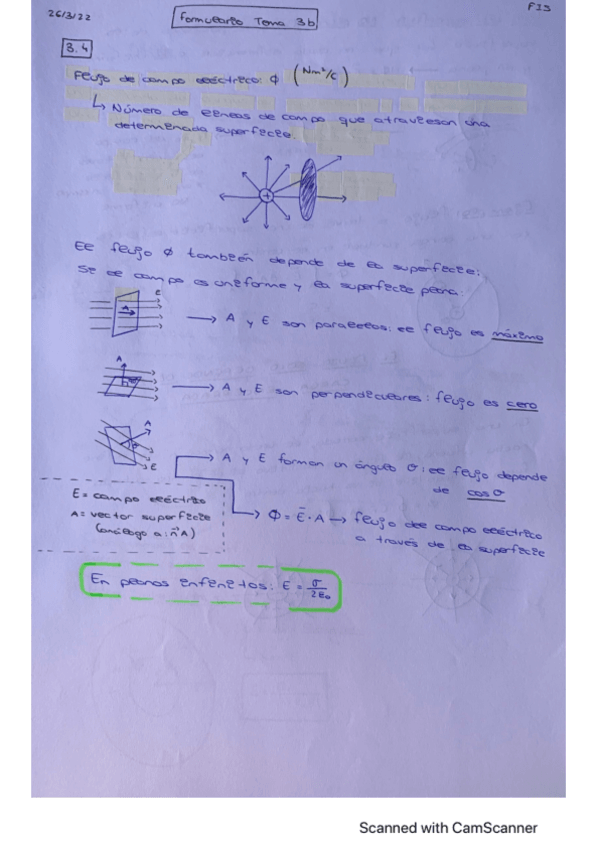 26/3/22
Formulario Tema 3b
FIS
3.4
Flujo de campo eléctrico: ϕ (Nm²/C)
↳ Número de líneas de campo que atraviesan una
determinada superficie.
+
El flujo ϕ también depende de la superficie:
Si el campo es uniforme y la superficie plana:
E
A
→ A y E son paralelos: el flujo es máximo
A
→ A y E son perpendiculares: flujo es cero
A
E
→ A y E forman un ángulo σ: el flujo depende
de cos σ
E = campo eléctrico
A = vector superficie
(análogo a: n⃗A)
→ Φ = E⃗ · A → flujo del campo eléctrico
a través de la superficie
En planos infinitos: E = σ/2ε₀
Scanned with CamScanner